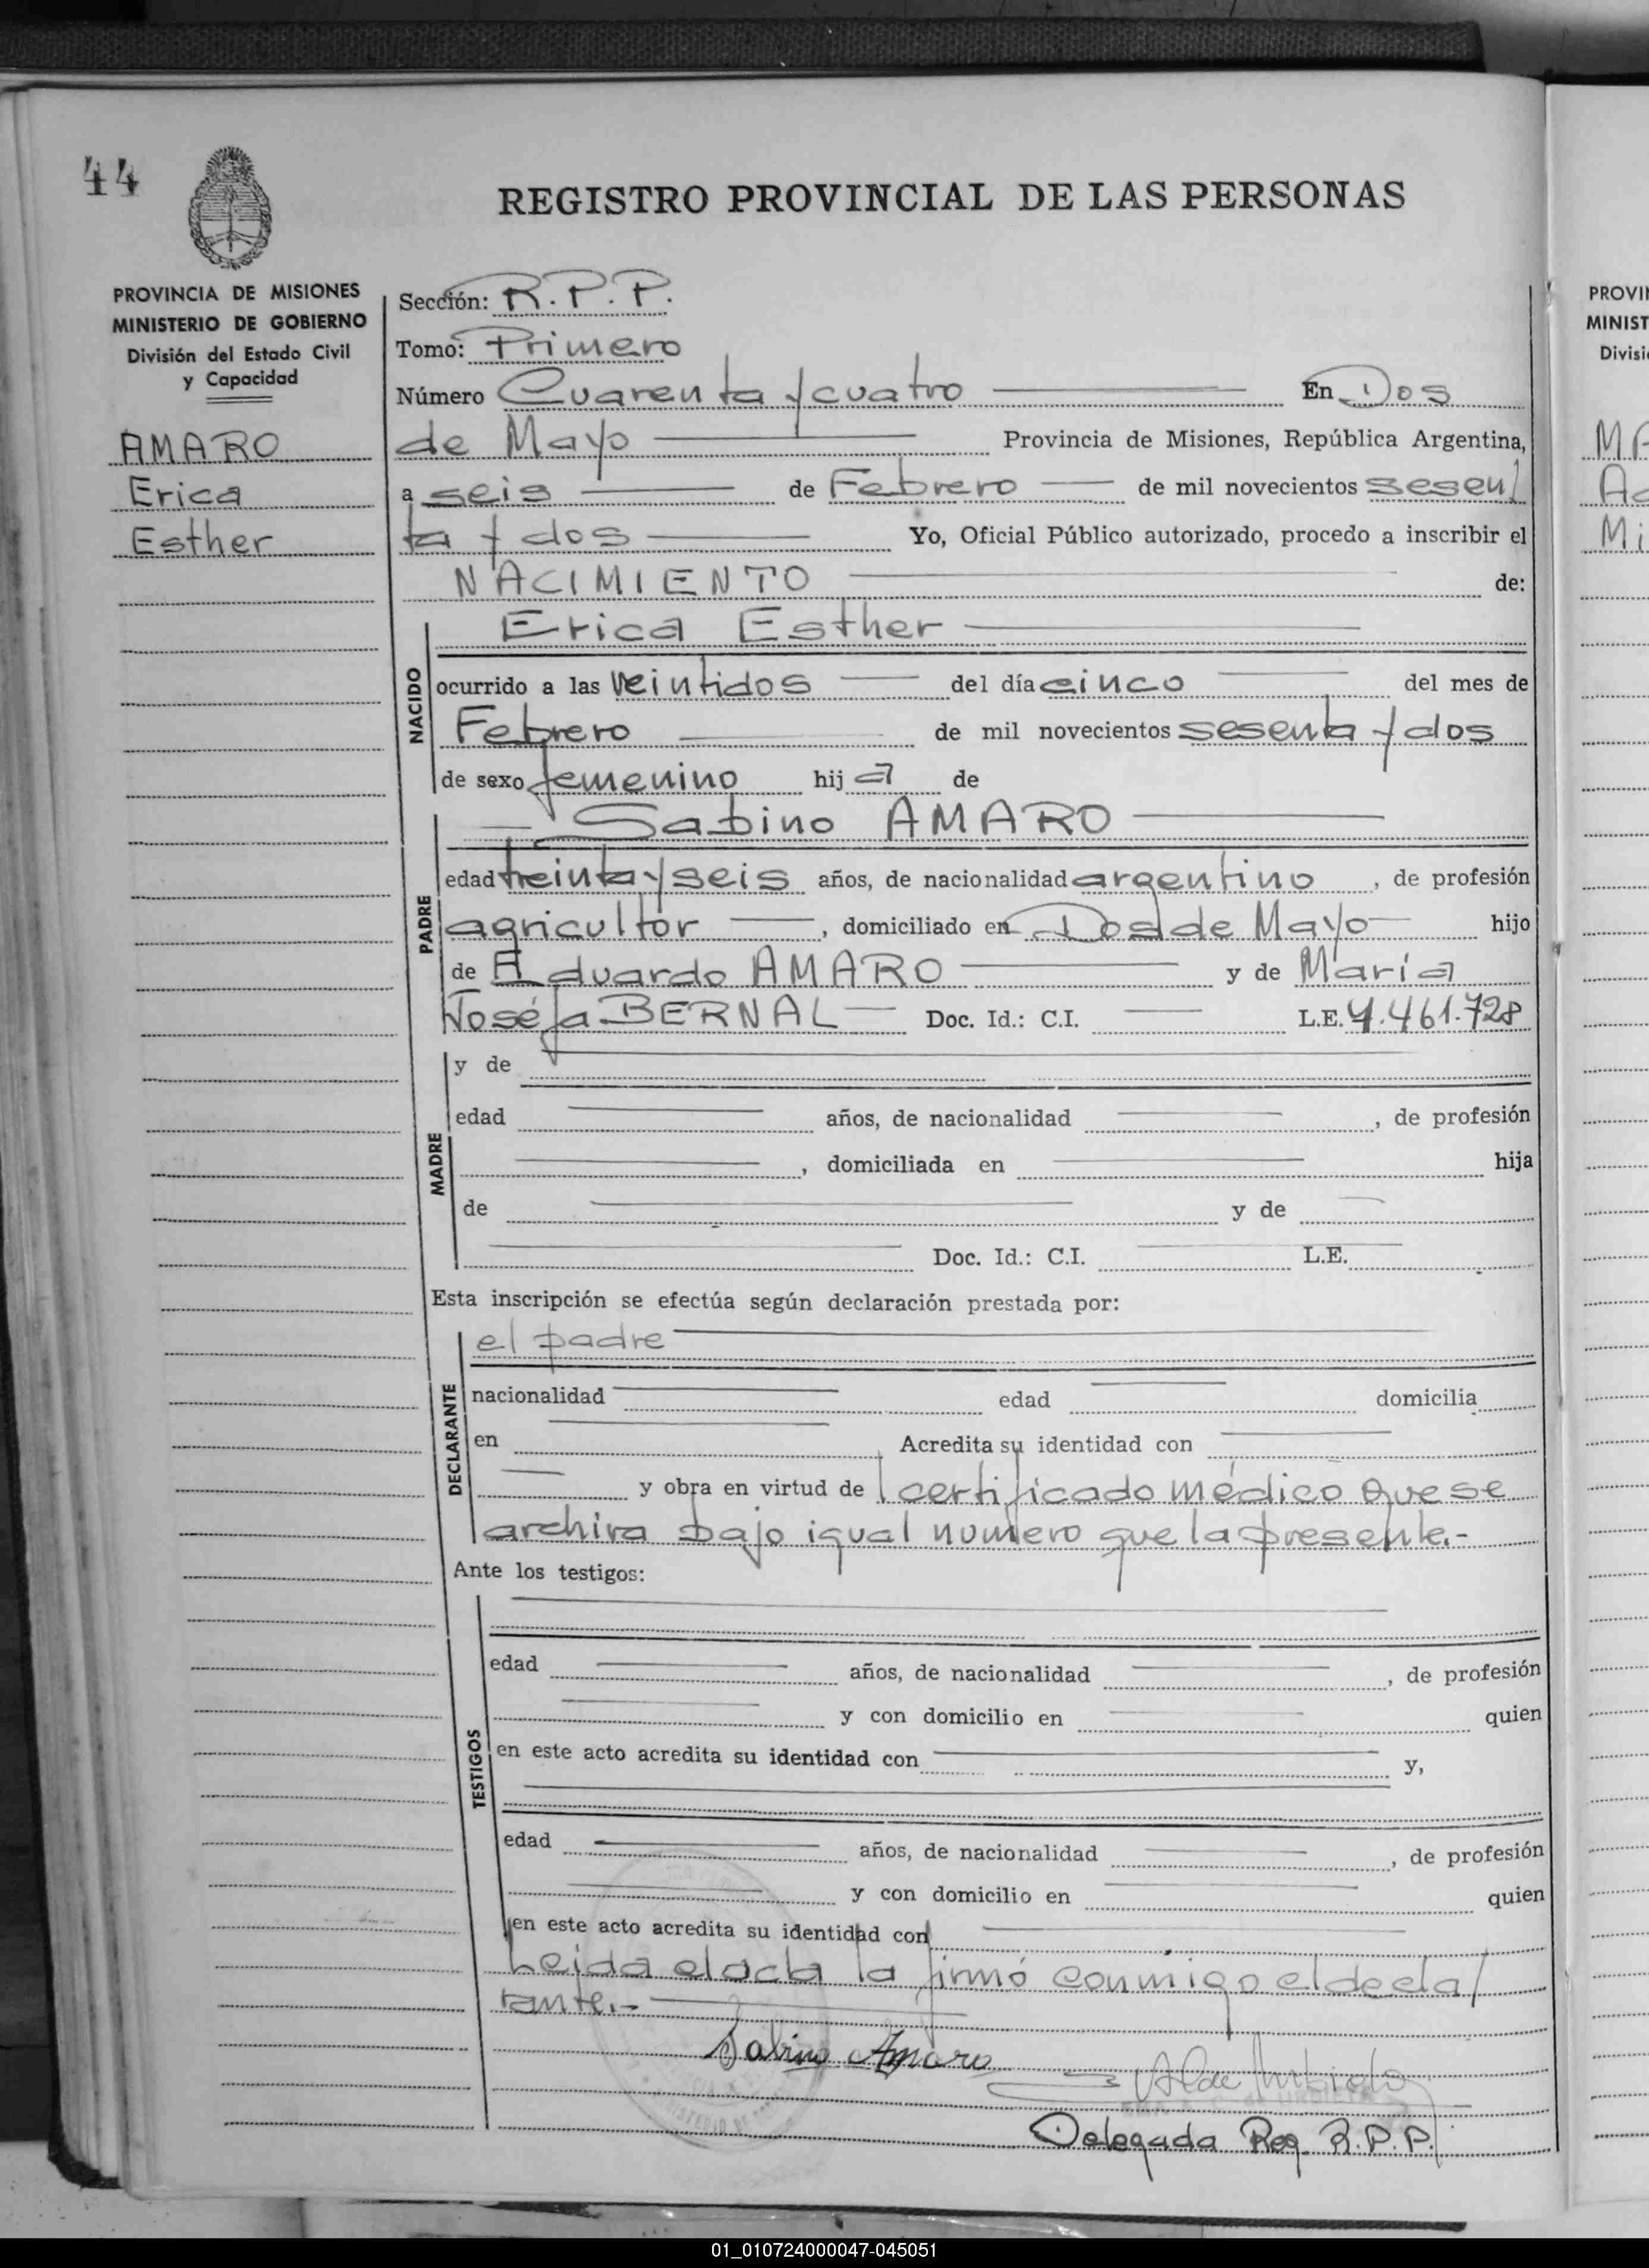 44
REGISTRO PROVINCIAL DE LAS PERSONAS
PROVINCIA DE MISIONES
MINISTERIO DE GOBIERNO
División del Estado Civil
y Capacidad
AMARO
Erica
Esther
Sección: R.P.P.
Tomo: Primero
Número Cuarenta y cuatro En Dos
de Mayo Provincia de Misiones, República Argentina,
a seis de Febrero de mil novecientos sesen/
ta y dos Yo, Oficial Público autorizado, procedo a inscribir el
NACIMIENTO de:
NACIDO
Erica Esther
ocurrido a las veintidos del día cinco del mes de
Febrero de mil novecientos sesenta y dos
de sexo femenino hij a de
PADRE
Sabino AMARO
edad treinta y seis años, de nacionalidad argentino, de profesión
agricultor, domiciliado en Dos de Mayo hijo
de Eduardo AMARO y de María
Joséfa BERNAL Doc. Id.: C.I. L.E. 7.461.728
MADRE
y de
edad años, de nacionalidad , de profesión
, domiciliada en hija
de y de
Doc. Id.: C.I. L.E.
Esta inscripción se efectúa según declaración prestada por:
DECLARANTE
el padre
nacionalidad edad domicilia
en Acredita su identidad con
y obra en virtud de certificado médico que se
archiva bajo igual numero que la presente.-
Ante los testigos:
TESTIGOS
edad años, de nacionalidad , de profesión
y con domicilio en quien
en este acto acredita su identidad con y,
edad años, de nacionalidad , de profesión
y con domicilio en quien
en este acto acredita su identidad con
Leida el acta la firmó conmigo el decla/
rante.-
Sabino Amaro
Delegada Reg. R.P.P.
PROVIN
MINIST
Divisi
01_010724000047-045051